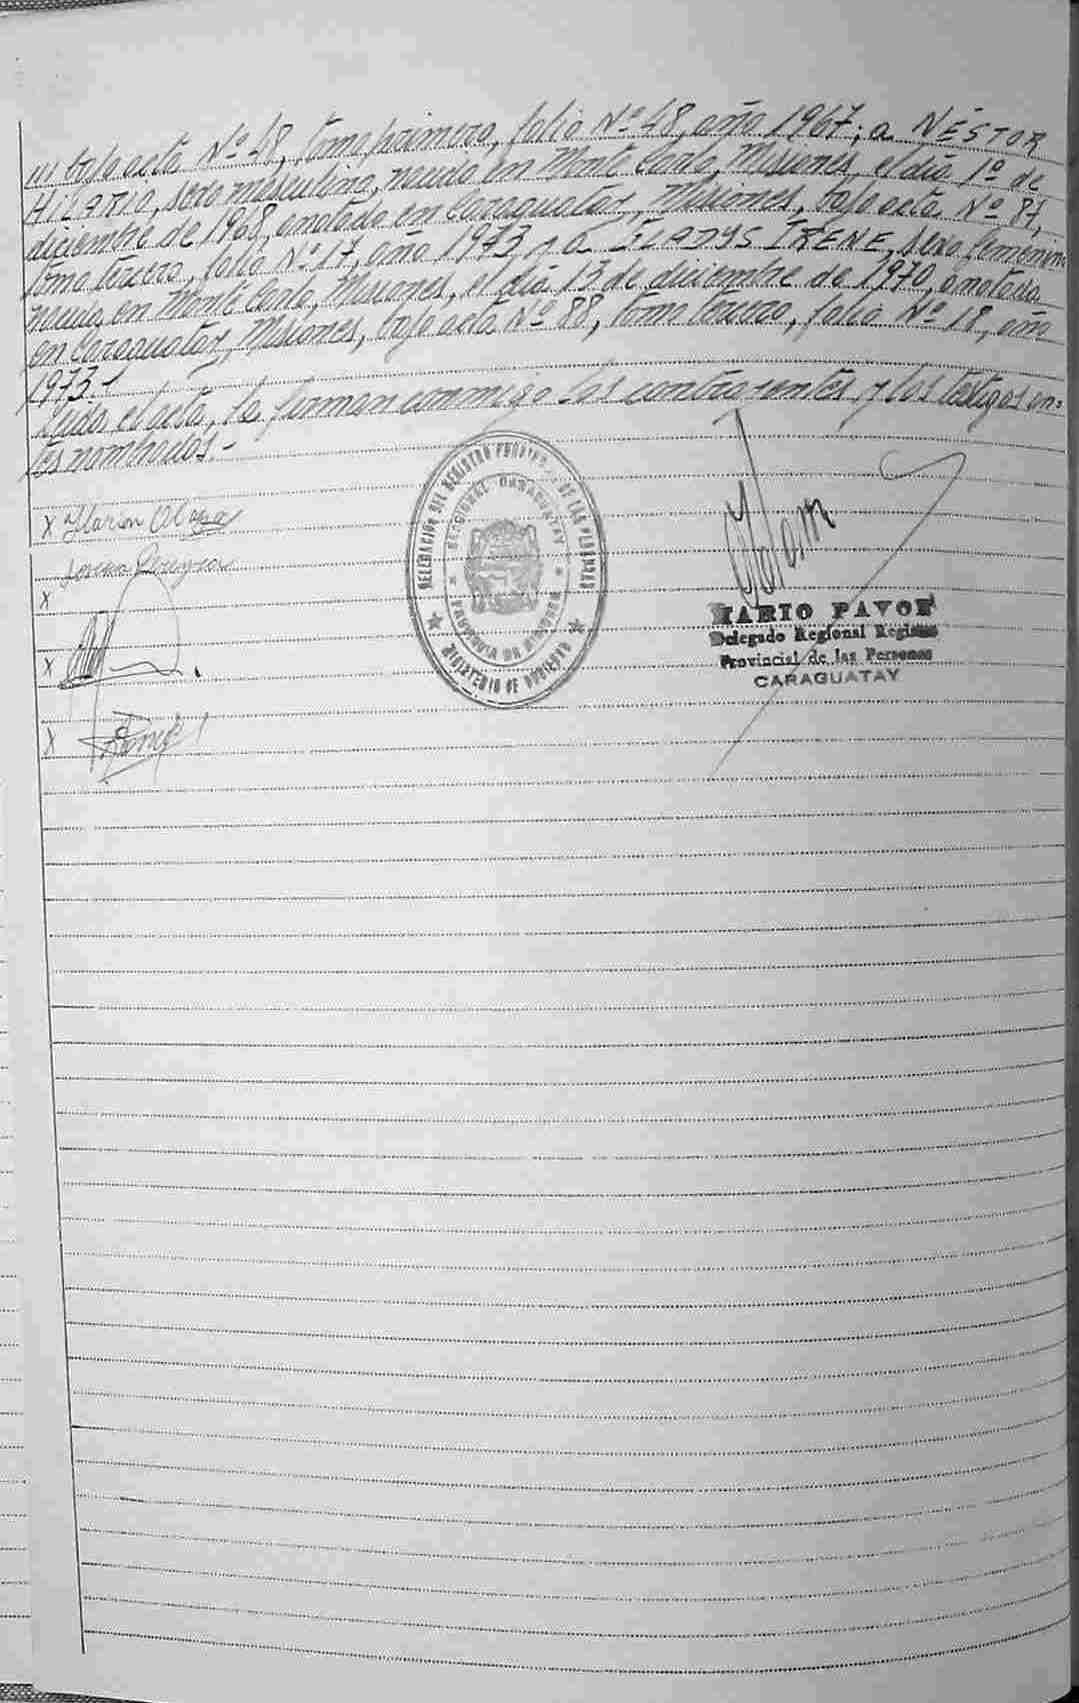 /// bajo acta Nº 48, tomo primero, folio Nº 48, año 1967; a NÉSTOR
HILARIO, sexo masculino, nacido en Monte Carlo, Misiones, el día 1º de
diciembre de 1968, anotado en Caraguatay, Misiones, bajo acta Nº 87,
tomo tercero, folio Nº 17, año 1973 y a GLADYS IRENE, sexo femenino,
nacida en Monte Carlo, Misiones, el día 13 de diciembre de 1970, anotada
en Caraguatay, Misiones, bajo acta Nº 88, tomo tercero, folio Nº 18, año
1973.-
Leída el acta, la firman conmigo los contrayentes y los testigos an-
tes nombrados.-
DELEGACIÓN DEL REGISTRO DE LAS PERSONAS
SECCIONAL CARAGUATAY
PROVINCIA DE MISIONES
MINISTERIO DE GOBIERNO
X
X
X
X
MARIO PAVON
Delegado Regional Registro
Provincial de las Personas
CARAGUATAY